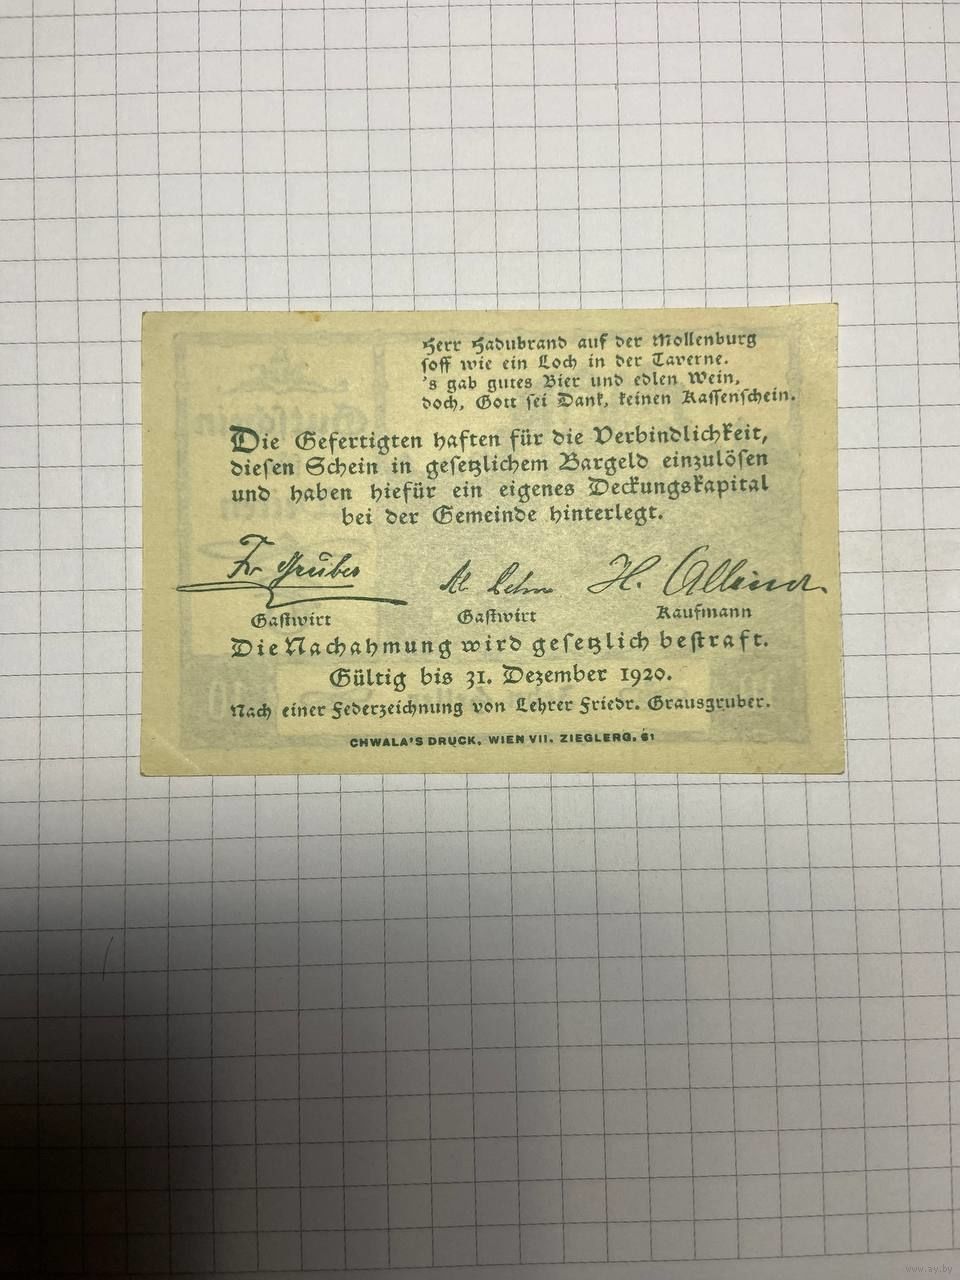 Herr Hadubrand auf der Mollenburg
soff wie ein Loch in der Taverne.
's gab gutes Bier und edlen Wein,
doch, Gott sei Dank, keinen Kassenschein.
Die Gefertigten haften für die Verbindlichkeit,
diesen Schein in gesetzlichem Bargeld einzulösen
und haben hiefür ein eigenes Deckungskapital
bei der Gemeinde hinterlegt.
Fr Gruber
Lehn
H.
Gastwirt
Gastwirt
Kaufmann
Die Nachahmung wird gesetzlich bestraft.
Gültig bis 31. Dezember 1920.
Nach einer Federzeichnung von Lehrer Friedr. Grausgruber.
CHWALA'S DRUCK, WIEN VII. ZIEGLERG. 61
www.ay.by